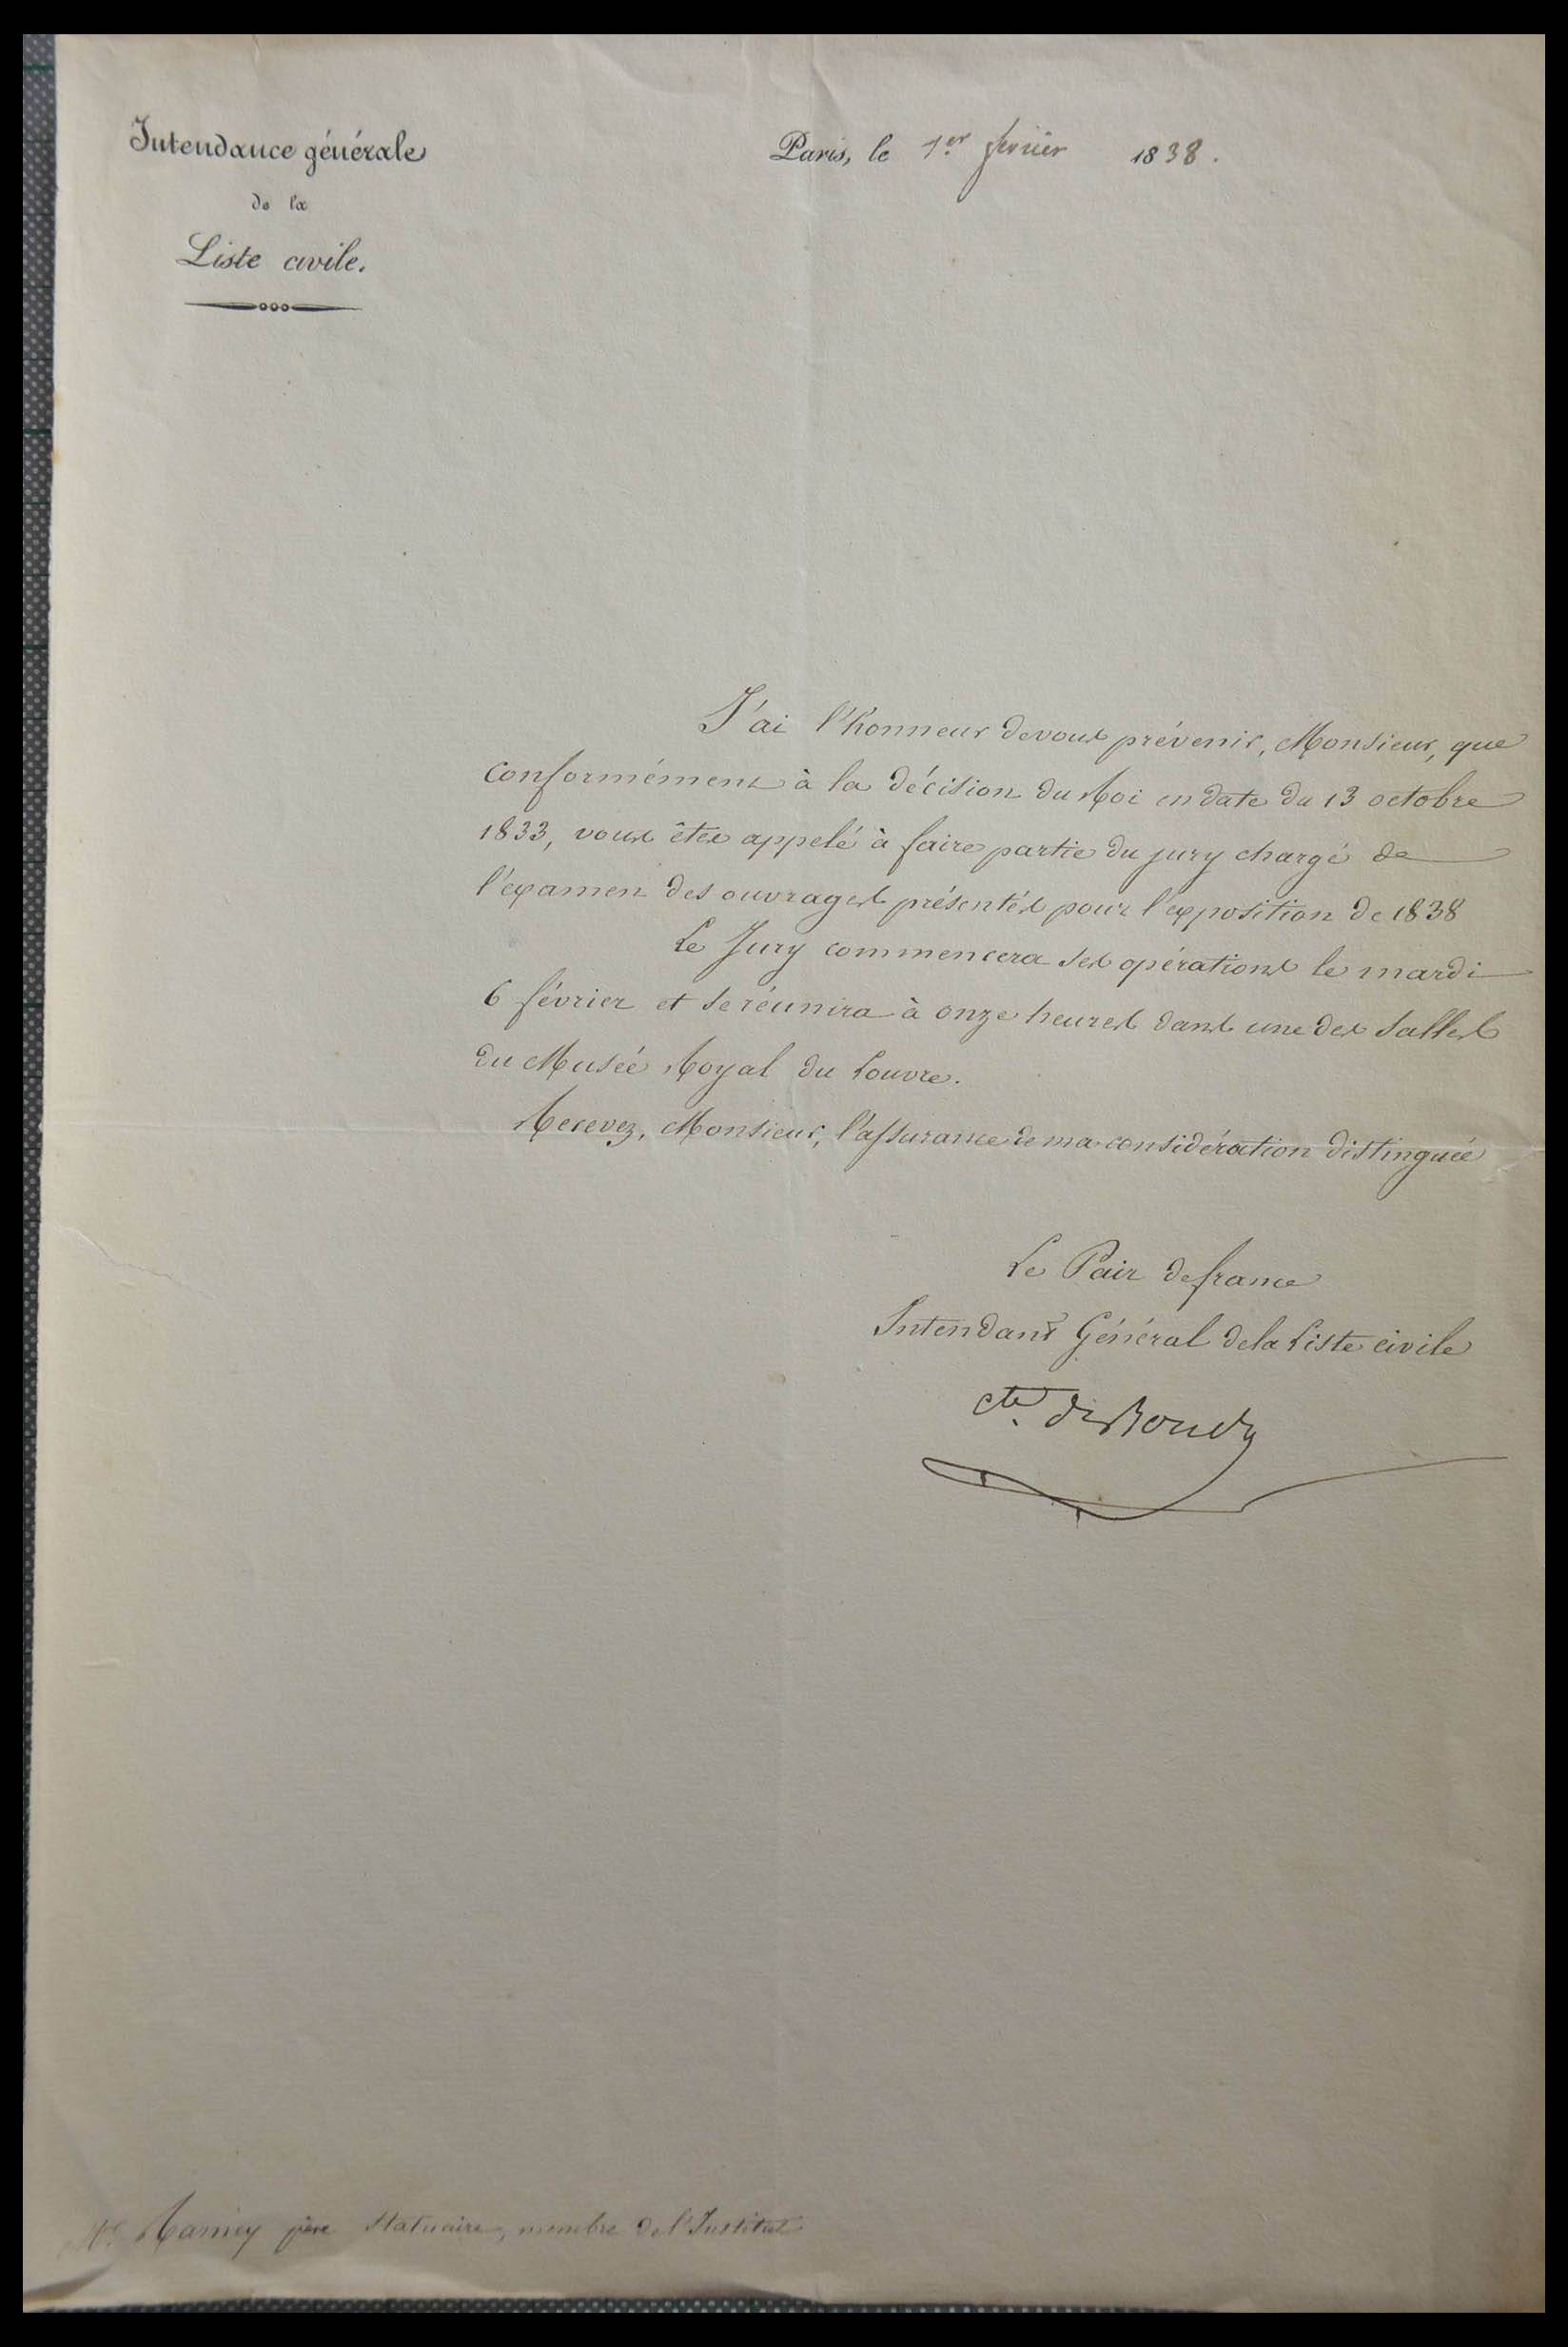 Intendance générale
de la
Liste civile.
Paris, le 1er février 1838.
J'ai l'honneur de vous prévenir, Monsieur, que
conformément à la décision du Roi en date du 13 octobre
1833, vous êtes appelé à faire partie du jury chargé de
l'examen des ouvrages présentés pour l'exposition de 1838
Le Jury commencera ses opérations le mardi
6 février et se réunira à onze heures dans une des salles
du Musée Royal du Louvre.
Recevez, Monsieur, l'assurance de ma considération distinguée
Le Pair de france
Intendant Général de la Liste civile
Cte. de Bondy
Mr. Ramey père statuaire, membre de l'Institut